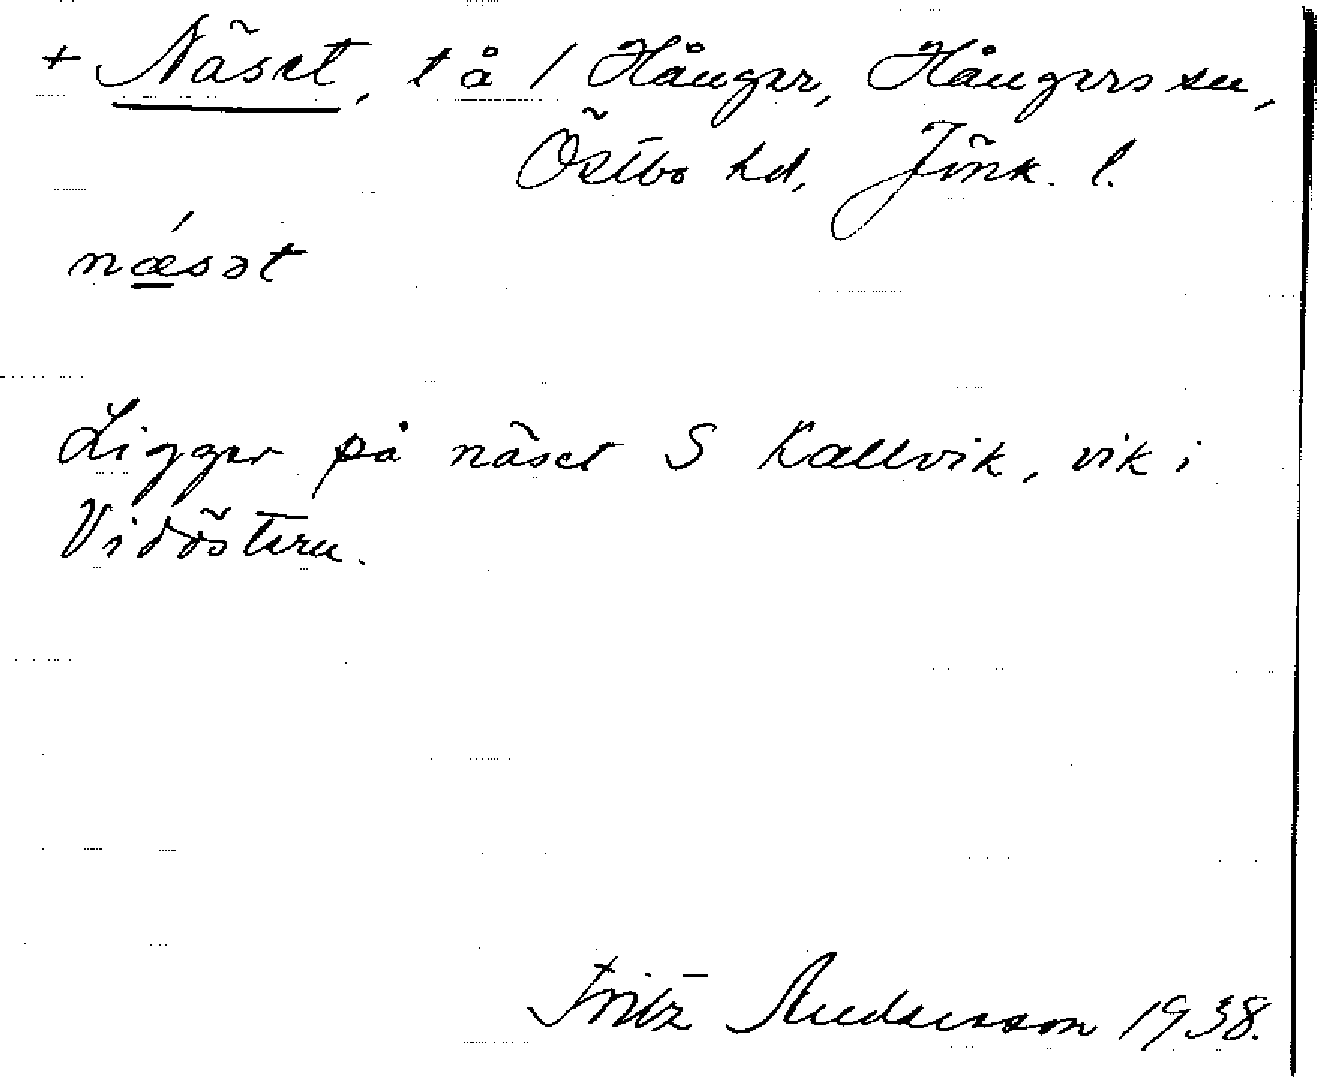 + Näset, t å 1 Hånger, Hångers sn,
Östbo hd, Jönk. l.
næ´sət
Ligger på näset S Kallvik, vik i
Vidöstern.
Fritz Andersson 1938.